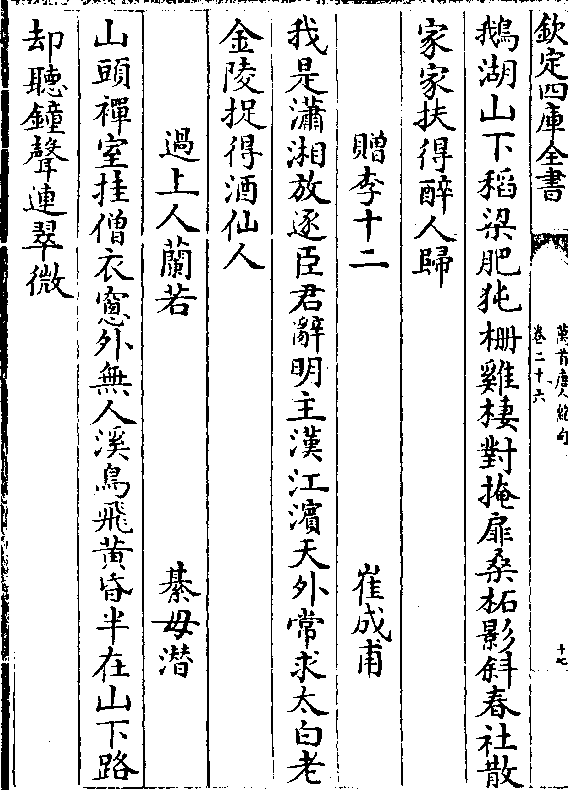 欽定四庫全書
萬首唐人絶句
卷二十六
十七
鵝湖山下稻梁肥㹠栅雞棲對掩扉桑柘影斜春社散
家家扶得醉人歸
贈李十二
崔成甫
我是瀟湘放逐臣君辭明主漢江濱天外常求太白老
金陵捉得酒仙人
過上人蘭若
綦毋潛
山頭禪室挂僧衣窻外無人溪鳥飛黄昏半在山下路
却聽鐘聲連翠微